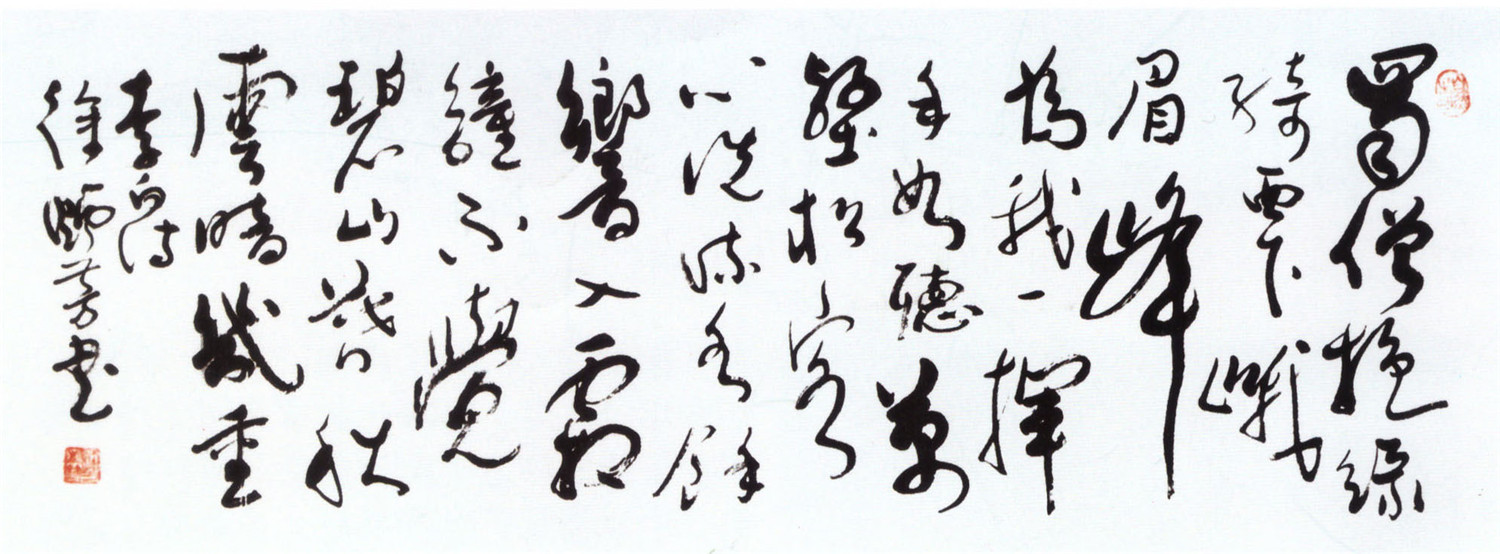 蜀僧抱綠
綺西下峨
眉峰
為我一揮
手如聽萬
壑松客
心洗流水餘
響入霜
鐘不覺
碧山暮秋
雲暗幾重
李白詩
徐芳书